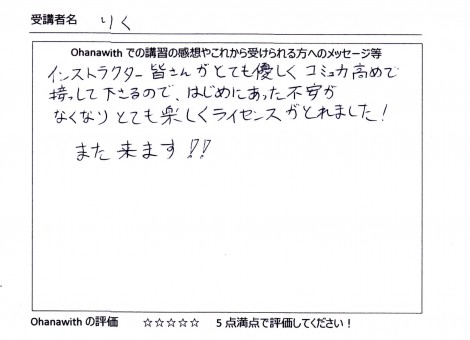 受講者名 りく
Ohanawith での講習の感想やこれから受けられる方へのメッセージ等
インストラクター皆さんがとても優しくコミュ力高めで
接っして下さるので、はじめにあった不安が
なくなりとても楽しくライセンスがとれました!
また来ます!!
Ohanawith の評価 ☆☆☆☆☆ 5 点満点で評価してください!